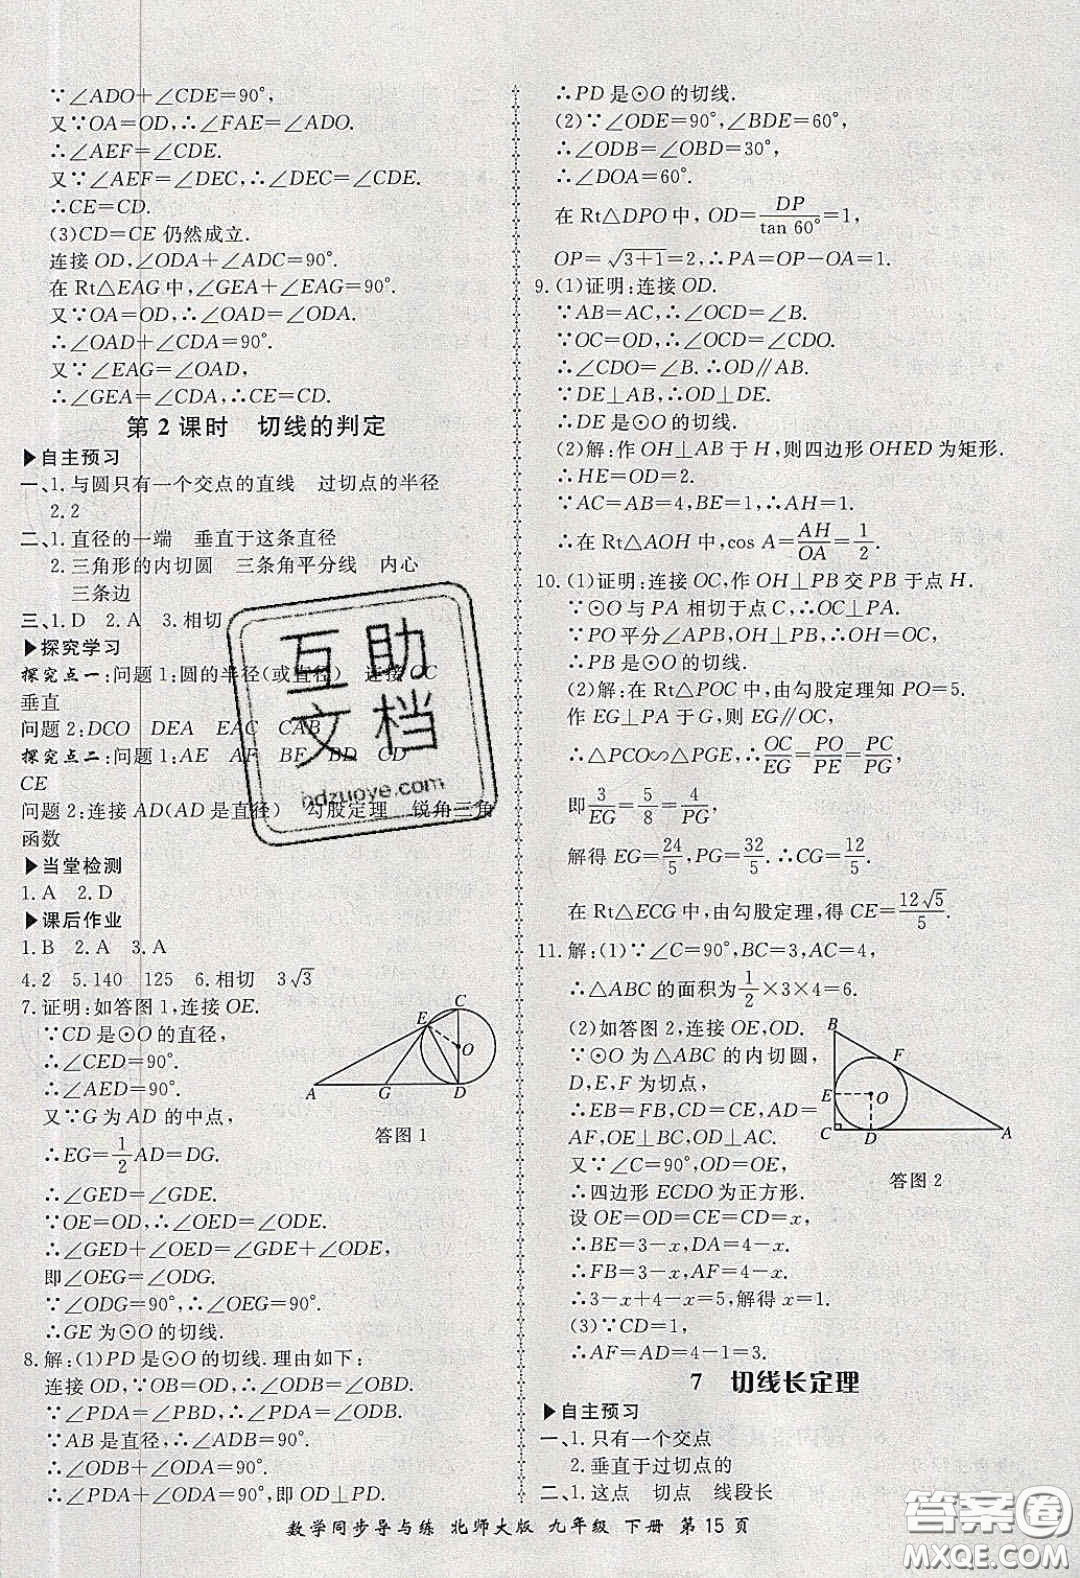 ∵∠ADO+∠CDE=90°,
又∵OA=OD,∴∠FAE=∠ADO.
∴∠AEF=∠CDE.
又∵∠AEF=∠DEC,∴∠DEC=∠CDE.
∴CE=CD.
(3)CD=CE 仍然成立.
连接 OD,∠ODA+∠ADC=90°.
在 Rt△EAG 中,∠GEA+∠EAG=90°.
又∵OA=OD,∴∠OAD=∠ODA.
∴∠OAD+∠CDA=90°.
又∵∠EAG=∠OAD,
∴∠GEA=∠CDA,∴CE=CD.
第 2 课时 切线的判定
▶自主预习
一、1.与圆只有一个交点的直线 过切点的半径
2.2
二、1.直径的一端 垂直于这条直径
2.三角形的内切圆 三条角平分线 内心
三条边
三、1.D 2.A 3.相切
▶探究学习
探究点一:问题 1:圆的半径(或直径) 连接 OC
垂直
问题 2:DCO DEA EAC CAB
探究点二:问题 1:AE AF BF BD CD
CE
问题 2:连接 AD(AD 是直径) 勾股定理 锐角三角
函数
▶当堂检测
1.A 2.D
▶课后作业
1.B 2.A 3.A
4.2 5.140 125 6.相切 3√3
7.证明:如答图 1,连接 OE.
∵CD 是⊙O 的直径,
∴∠CED=90°.
∴∠AED=90°.
又∵G 为 AD 的中点,
∴EG=1/2AD=DG.
∴∠GED=∠GDE.
∵OE=OD,∴∠OED=∠ODE.
∴∠GED+∠OED=∠GDE+∠ODE,
即∠OEG=∠ODG.
∵∠ODG=90°,∴∠OEG=90°.
∴GE 为⊙O 的切线.
C
E
O
A
G
D
答图 1
8.解:(1)PD 是⊙O 的切线.理由如下:
连接 OD,∵OB=OD,∴∠ODB=∠PBD.
∵∠PDA=∠PBD,∴∠PDA=∠ODB.
∵AB 是直径,∴∠ADB=90°.
∴∠ODB+∠ODA=90°.
∴∠PDA+∠ODA=90°,即 OD⊥PD.
∴PD 是⊙O 的切线.
(2)∵∠ODE=90°,∠BDE=60°,
∴∠ODB=∠OBD=30°,
∴∠DOA=60°.
在 Rt△DPO 中,OD=DP/tan 60°=1,
OP=√3+1=2,∴PA=OP-OA=1.
9.(1)证明:连接 OD.
∵AB=AC,∴∠OCD=∠B.
∵OC=OD,∴∠OCD=∠CDO.
∴∠CDO=∠B.∴OD∥AB.
∵DE⊥AB,∴OD⊥DE.
∴DE 是⊙O 的切线.
(2)解:作 OH⊥AB 于 H,则四边形 OHED 为矩形.
∴HE=OD=2.
∵AC=AB=4,BE=1,∴AH=1.
∴在 Rt△AOH 中,cos A=AH/OA=1/2.
10.(1)证明:连接 OC,作 OH⊥PB 交 PB 于点 H.
∵⊙O 与 PA 相切于点 C,∴OC⊥PA.
∵PO 平分∠APB,OH⊥PB,∴OH=OC.
∴PB 是⊙O 的切线.
(2)解:在 Rt△POC 中,由勾股定理知 PO=5.
作 EG⊥PA 于 G,则 EG∥OC,
∴△PCO∽△PGE,∴OC/EG=PO/PE=PC/PG,
即3/EG=5/8=4/PG,
解得 EG=24/5,PG=32/5.∴CG=12/5.
在 Rt△ECG 中,由勾股定理,得 CE=12√5/5.
11.解:(1)∵∠C=90°,BC=3,AC=4,
∴△ABC 的面积为1/2×3×4=6.
(2)如答图 2,连接 OE,OD.
∵⊙O 为△ABC 的内切圆,
D,E,F 为切点,
∴EB=FB,CD=CE,AD=
AF,OE⊥BC,OD⊥AC.
又∵∠C=90°,OD=OE,
∴四边形 ECDO 为正方形.
设 OE=OD=CE=CD=x,
∴BE=3-x,DA=4-x.
∴FB=3-x,AF=4-x.
∴3-x+4-x=5,解得 x=1.
(3)∵CD=1,
∴AF=AD=4-1=3.
B
F
E
O
C
D
A
答图 2
7 切线长定理
▶自主预习
一、1.只有一个交点
2.垂直于过切点的
二、1.这点 切点 线段长
数学同步导与练 北师大版 九年级 下册 第 15 页
互助
文档
hdzuoye.com
答案圈
MXQE.COM